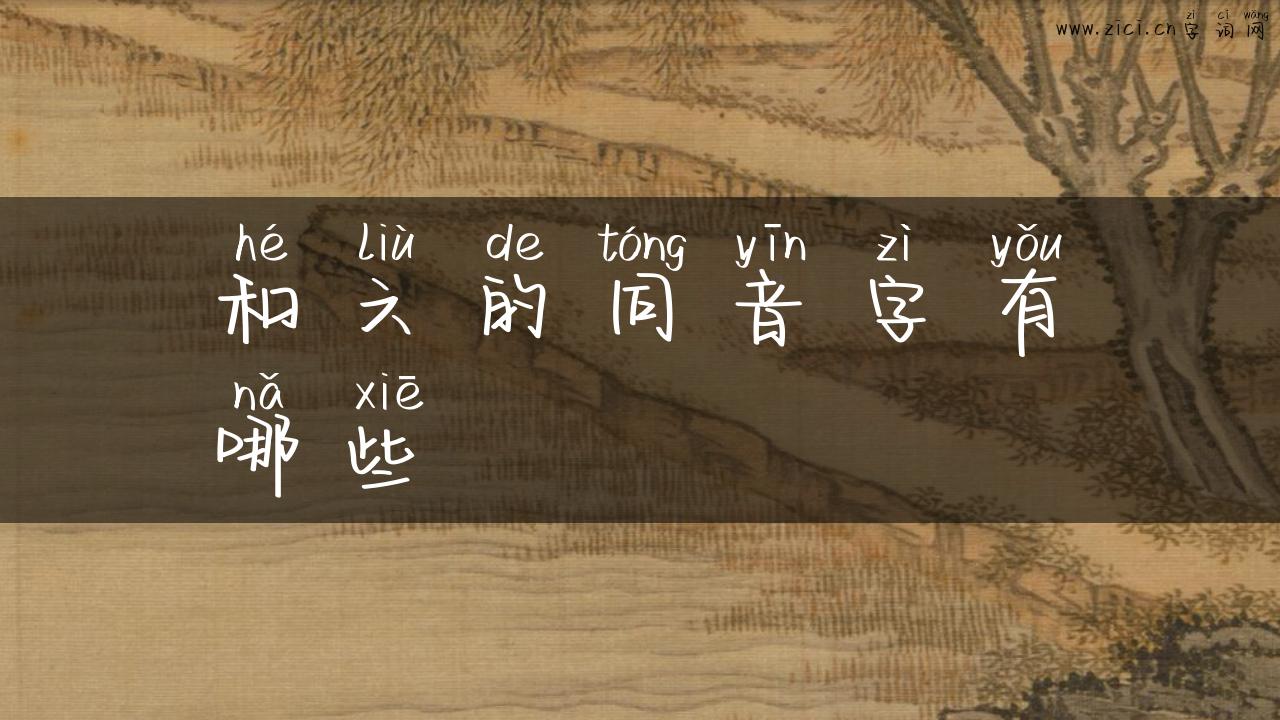 zì cí wǎng
www.zici.cn字词网
hé liù de tóng yīn zì yǒu
和六的同音字有
nǎ xiē
哪些